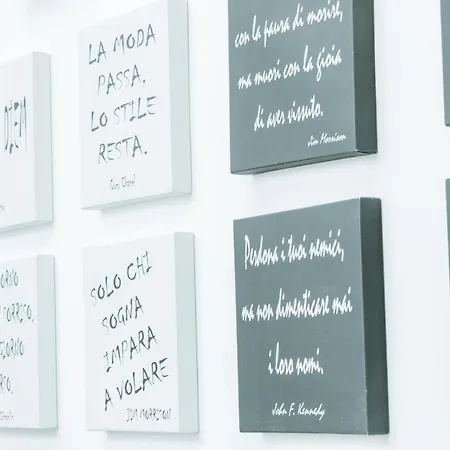 DIEM
LA MODA
PASSA,
LO STILE
RESTA.
con la paura di morire,
ma muori con la gioia
di aver vissuto.
Jim Morrison
SOLO CHI
SOGNA
IMPARA
A VOLARE
JIM MORRISON
Perdona i tuoi nemici,
ma non dimenticare mai
i loro nomi.
John F. Kennedy